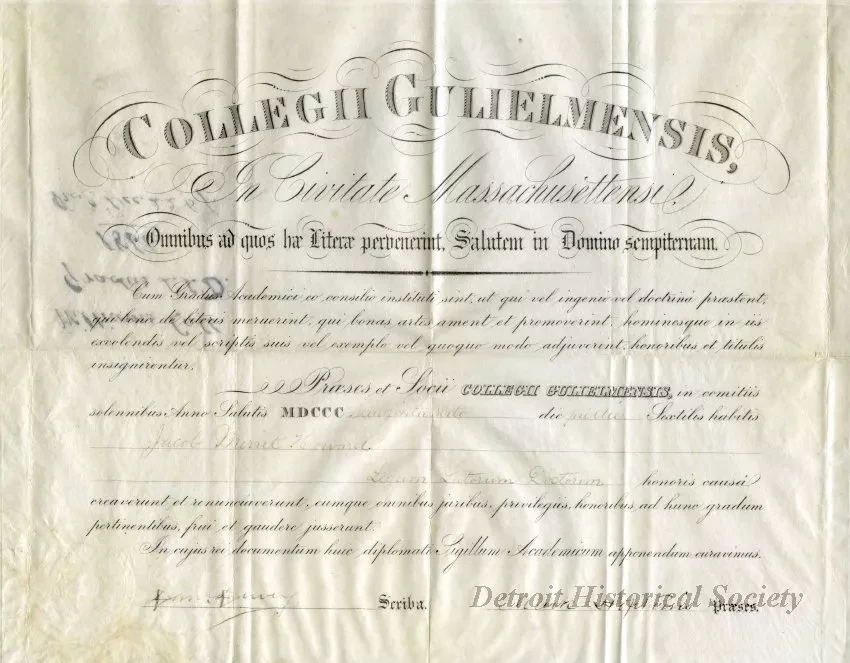 COLLEGII GULIELMENSIS,
In Civitate Massachusettensi,
Omnibus ad quos hæ Literæ pervenerint, Salutem in Domino sempiternam.
Cum Gradus Academici eo consilio instituti sint, ut qui vel ingenio vel doctrinâ præstent,
qui bene de literis meruerint, qui bonas artes ament et promoverint, hominesque in iis
excolendis vel scriptis suis vel exemplo vel quoquo modo adjuverint, honoribus et titulis
insignirentur.
Præses et Socii COLLEGII GULIELMENSIS, in comitiis
solennibus Anno Salutis MDCCC die Sextilis habitis
Jacob Howard
Doctorum honoris causâ
creaverunt et renunciaverunt, eumque omnibus juribus, privilegiis, honoribus ad hunc gradum
pertinentibus, frui et gaudere jusserunt.
In cujus rei documentum huic diplomati Sigillum Academicum apponendum curavimus.
Scriba. Præses.
Detroit Historical Society